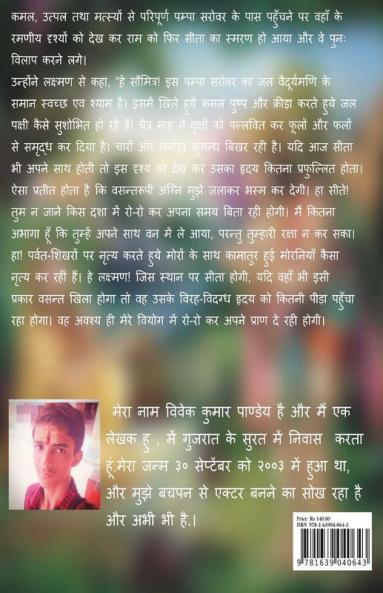 कमल, उत्पल तथा मत्स्यों से परिपूर्ण पम्पा सरोवर के पास पहुँचने पर वहाँ के
रमणीय दृश्यों को देख कर राम को फिर सीता का स्मरण हो आया और वे पुनः
विलाप करने लगे।
उन्होंने लक्ष्मण से कहा, "हे सौमित्र! इस पम्पा सरोवर का जल वैदूर्यमणि के
समान स्वच्छ एवं श्याम है। इसमें खिले हुये कमल पुष्प और क्रीड़ा करते हुये जल
पक्षी कैसे सुशोभित हो रहे हैं! चैत्र माह ने वृक्षों को पल्लवित कर फूलों और फलों
से समृद्ध कर दिया है। चारों ओर मनोहर सुगन्ध बिखर रही है। यदि आज सीता
भी अपने साथ होती तो इस दृश्य को देख कर उसका हृदय कितना प्रफुल्लित होता।
ऐसा प्रतीत होता है कि वसन्तरूपी अग्नि मुझे जलाकर भस्म कर देगी। हा सीते!
तुम न जाने किस दशा में रो-रो कर अपना समय बिता रही होगी। मैं कितना
अभागा हूँ कि तुम्हें अपने साथ वन में ले आया, परन्तु तुम्हारी रक्षा न कर सका।
हा! पर्वत-शिखरों पर नृत्य करते हुये मोरों के साथ कामातुर हुई मोरनियाँ कैसा
नृत्य कर रहीं हैं। हे लक्ष्मण! जिस स्थान पर सीता होगी, यदि वहाँ भी इसी
प्रकार वसन्त खिला होगा तो वह उसके विरह-विदग्ध हृदय को कितनी पीड़ा पहुँचा
रहा होगा। वह अवश्य ही मेरे वियोग में रो-रो कर अपने प्राण दे रही होगी।
मेरा नाम विवेक कुमार पाण्डेय है और मैं एक
लेखक हु , में गुजरात के सुरत में निवास करता
हूं,मेरा जन्म ३० सेप्टेंबर को २००३ में हुआ था,
और मुझे बचपन से एक्टर बनने का सोख रहा है
और अभी भी है.|
Price: Rs 140.00
ISBN 978-1-63904-064-3
9 781639 040643